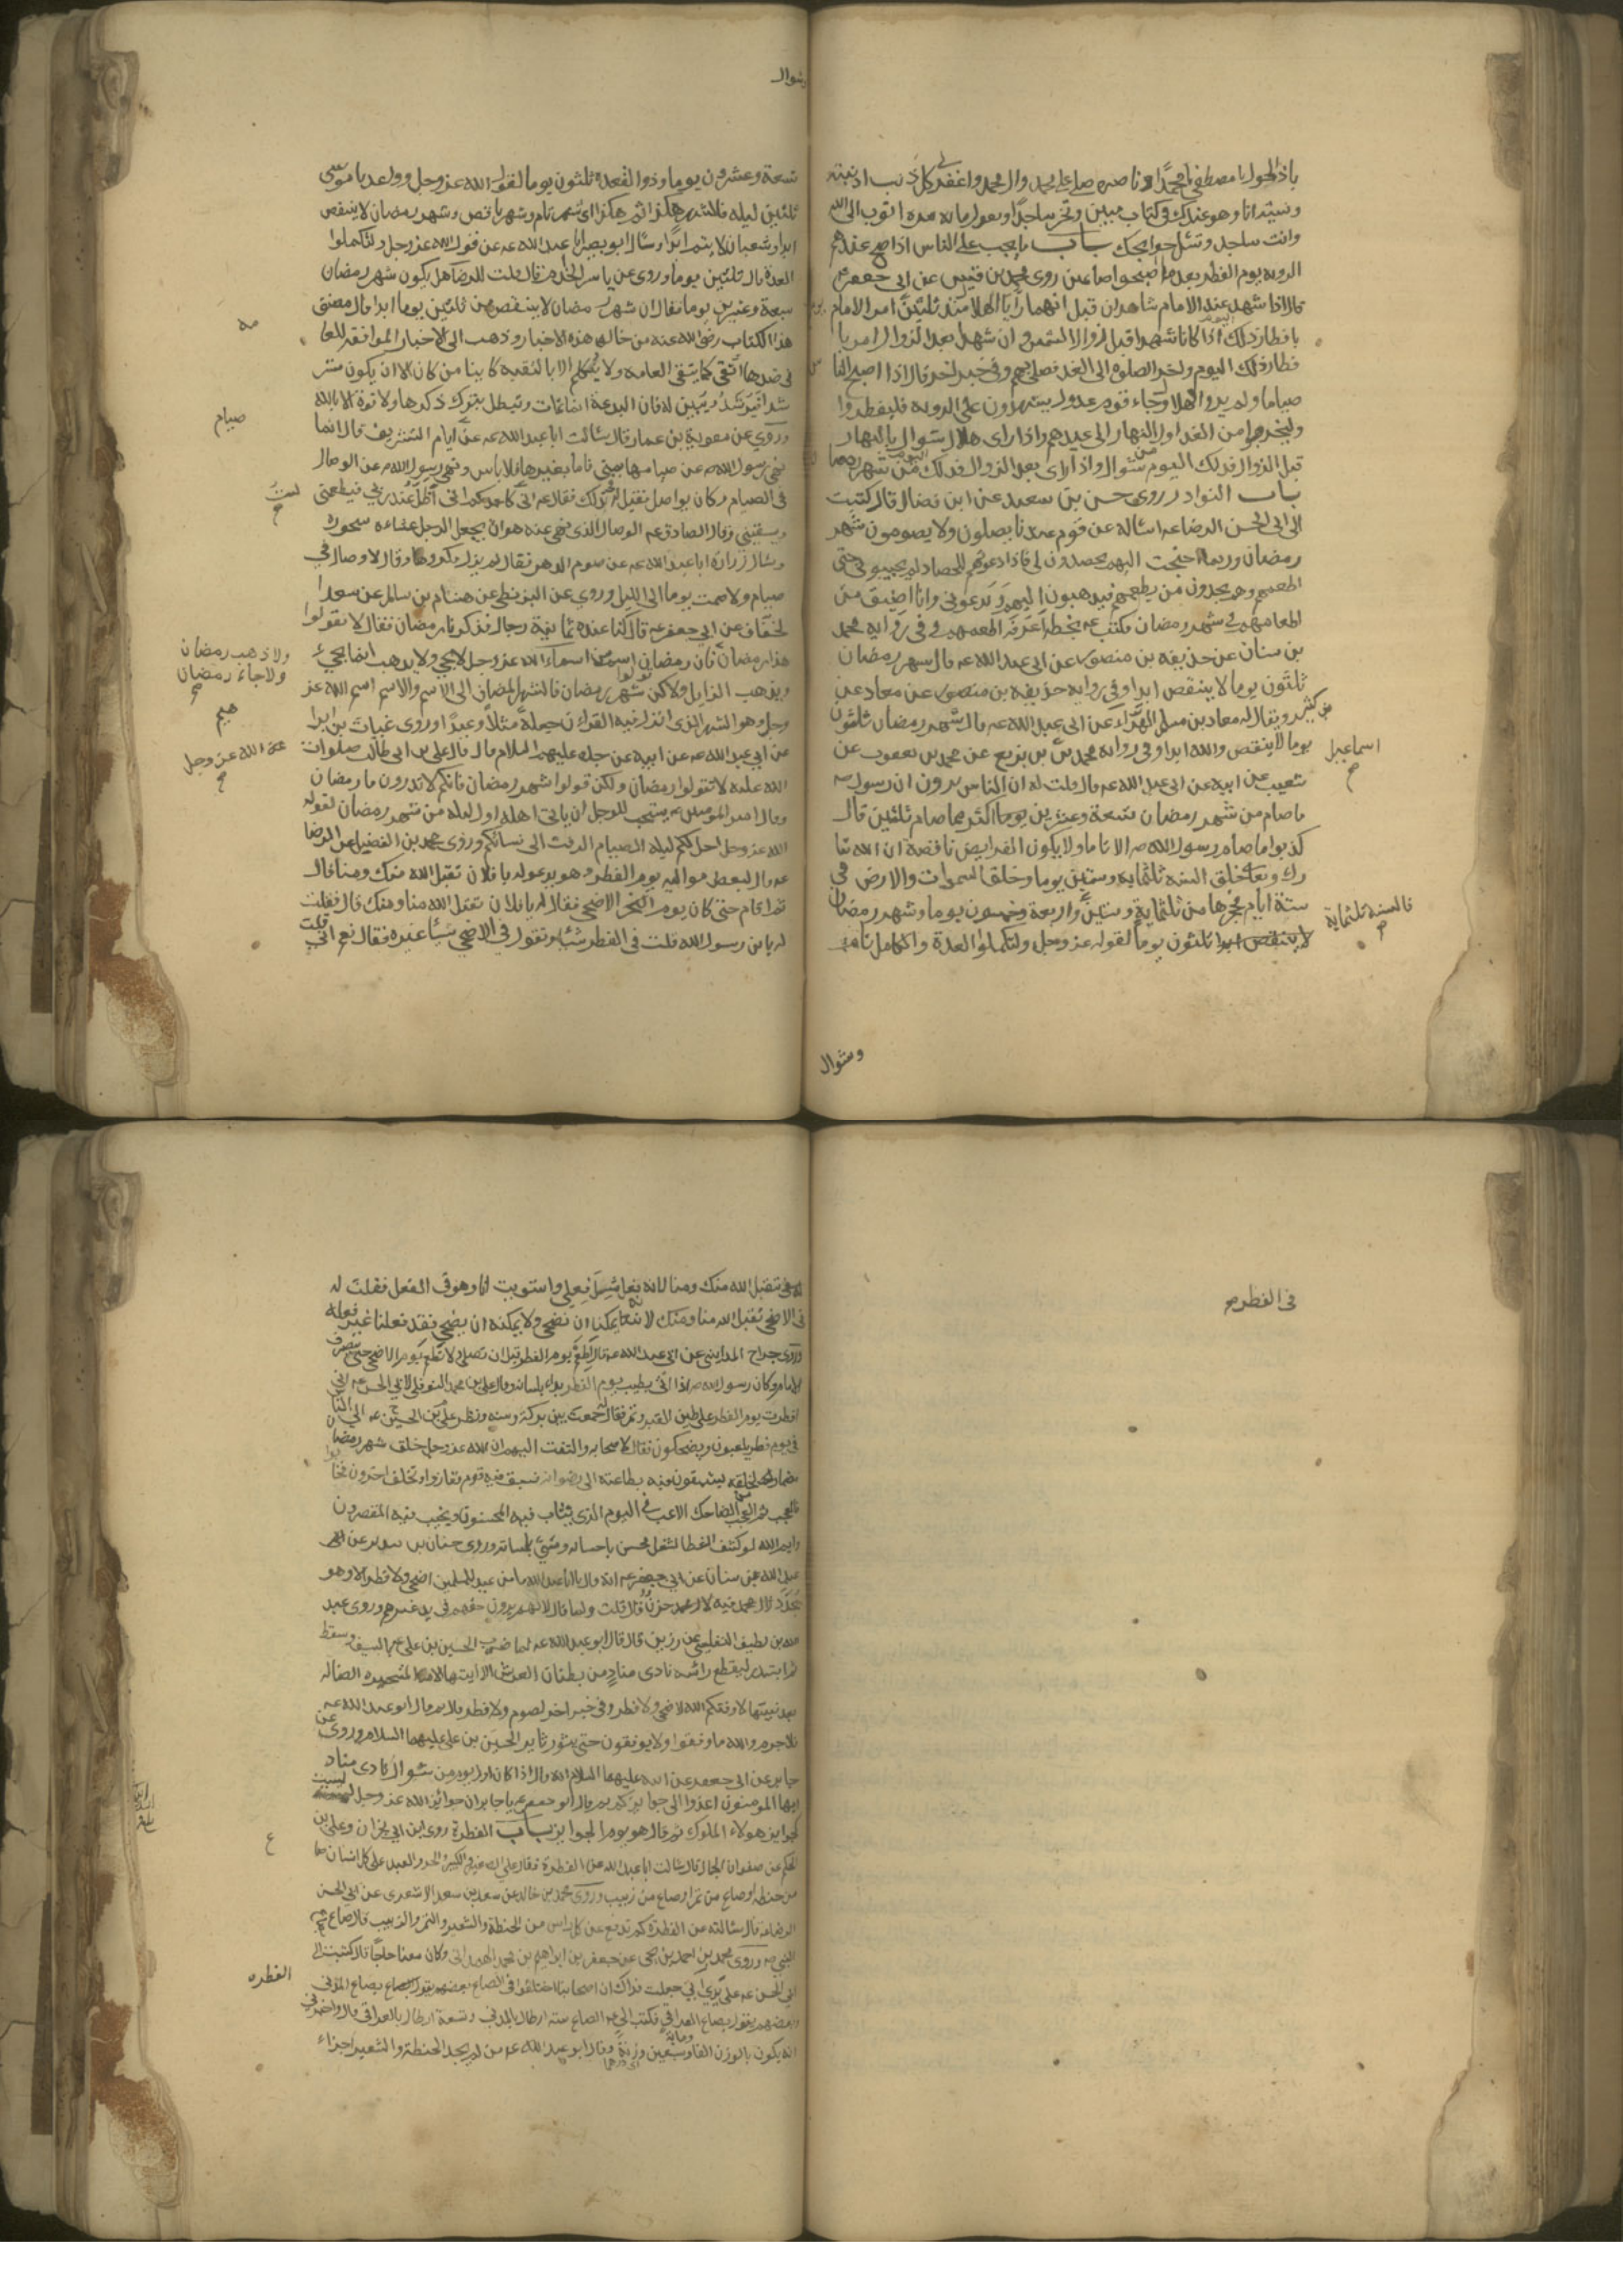 ياذا الحول يا مصطفى محمدا وناصره صل على محمد وال محمد واغفر لى كل ذنب اذنبته
ونسيته انا وهو عندك فى كتاب مبين وتخر ساجدا وتقول مائة مره اتوب الى الله
وانت ساجد وتسئل حوايجك باب ما يجب على الناس اذا صح عندهم
الرويه يوم الفطر بعد ما اصبحوا صائمين روى محمد بن قيس عن ابى جعفر عم
قال اذا شهد عند الامام شاهدان انهما رأيا الهلال منذ ثلثين امر الامام
بافطار ذلك اليوم اذا كانا شهدا قبل زوال الشمس وان شهدا بعد الزوال امر با
فطار ذلك اليوم واخر الصلوة الى الغد فصلى بهم وفى خبر اخر قال اذا اصبح النا
صياما ولم يروا الهلال وجاء قوم عدول يشهدون على الرويه فليفطروا
وليخرجوا من الغد اول النهار الى عيدهم واذا راى هلال شوال بالنهار
قبل الزوال فذلك اليوم من شوال واذا راى بعد الزوال فذلك اليوم من شهر رمضا
باب النوادر روى حسن بن سعيد عن ابن فضال قال كتبت
الى ابى الحسن الرضا عم اسأله عن قوم عندنا يصلون ولا يصومون شهر
رمضان وربما احتجت اليهم يحصدون لى فاذا دعوتهم للحصاد لم يجيبونى حتى
اطعمهم وهم يجدون من يطعمهم فيذهبون اليهم ويدعونى وانا اضيق من
اطعامهم فى شهر رمضان فكتب عم بخطه اعرفه اطعمهم وفى رواية محمد
بن سنان عن حذيفه بن منصور عن ابى عبد الله عم قال شهر رمضان
ثلثون يوما لا ينقص ابدا وفى رواية حذيفه بن منصور عن معاذ بن
كثير ويقال له معاذ بن مسلم الهراء عن ابى عبد الله عم قال شهر رمضان ثلثون
يوما لا ينقص والله ابدا وفى رواية محمد بن بزيع عن محمد بن يعقوب عن
شعيب عن ابيه عن ابى عبد الله عم قال قلت له ان الناس يروون ان رسول
ما صام من شهر رمضان تسعة وعشرين يوما اكثر مما صام ثلثين قال
كذبوا ما صام رسول الله صم الا تاما ولا يكون الفرايض ناقصة ان الله تبا
رك وتعالى خلق السنه ثلثمايه وستين يوما وخلق السموات والارض فى
ستة ايام فحجزها من ثلثماية وستين واربعة وخمسون يوما وشهر رمضان
ثلثون يوما لقوله عز وجل ولتكملوا العدة والكامل تام
اسماعيل
فالسنه ثلثماية
وشوال
وشوال
تسعة وعشرون يوما وذو القعده ثلثون يوما لقول الله عز وجل وواعدنا موسى
ثلثين ليله فالشهر هكذا ثم هكذا اى شهر تام وشهر ناقص وشهر رمضان لا ينقص
ابدا وشعبان لا يتم ابدا وسأل ابو بصير ابا عبد الله عم عن قول الله عز وجل ولتكملوا
العدة قال ثلثين يوما وروى عن ياسر الخادم قال قلت للرضا هل يكون شهر رمضان
تسعة وعشرين يوما فقال ان شهر رمضان لا ينقص من ثلثين يوما ابدا قال مصنف
هذا الكتاب رضى الله عنه من خالف هذه الاخبار وذهب الى الاخبار الموافقه للعا
فى ضدها اتقى كما يتقى العامه ولا يكلم الا بالتقيه كاينا من كان الا ان يكون مستر
شدا فيرشد ويبين له فان البدعة انما تمات وتبطل بترك ذكرها ولا قوة الا بالله
وروى عن معوية بن عمار قال سئالت ابا عبد الله عم عن ايام التشريق قال انما
نهى رسول الله صم عن صيامها بمنى فاما بغيرها فلا باس ونهى رسول الله صم عن الوصال
فى الصيام وكان يواصل فقيل له فى ذلك فقال عم انى كاحدكم انى اظل عند ربى فيطعمنى
ويسقينى وقال الصادق عم الوصال الذى نهى عنه هو ان يجعل الرجل عشاءه سحوره
وسئال زرارة ابا عبد الله عم عن صوم الدهر فقال لم يزل مكروها وقال لا وصال فى
صيام ولا صمت يوما الى الليل وروى عن البزنطى عن هشام بن سالم عن سعد ا
لخفاف عن ابى جعفر عم قال كنا عنده ثمانية رجال فذكرنا رمضان فقال لا تقولوا
هذا رمضان فان رمضان اسم من اسماء الله عز وجل لا يجئ ولا يذهب انما يجئ
ويذهب الزايل ولكن قولوا شهر رمضان فالشهر المضاف الى الاسم والاسم اسم الله عز
وجل وهو الشهر الذى انزل فيه القران جعله مثلا وعيدا وروى غياث بن ابرا
عن ابى عبد الله عم عن ابيه عن جده عليهم السلام قال قال على بن ابى طالب صلوات
الله عليه لا تقولوا رمضان ولكن قولوا شهر رمضان فانكم لا تدرون ما رمضان
وقال امير المومنين عم يستحب للرجل ان ياتى اهله اول ليله من شهر رمضان لقوله
الله عز وجل احل لكم ليله الصيام الرفث الى نسائكم وروى محمد بن الفضيل عن الرضا
عم قال لبعض مواليه يوم الفطر وهو يدعو له يا فلان تقبل الله منك ومنا قال
ثم اقام حتى كان يوم الاضحى فقال له يا فلان تقبل الله منا ومنك قال فقلت
له يابن رسول الله قلت فى الفطر شيئا وتقول فى الاضحى شيئا غيره فقال نعم انى قلت
صيام
لست
ولا ذهب رمضان
ولا جاء رمضان
هيم
عند الله عز وجل
فى الفطر
تقبل الله منك ومنا لانه فعل مثل فعلى واستويت انا وهو فى الفعل فقلت له
فى الاضحى تقبل الله منا ومنك لانه يمكننا ان نضحى ولا يمكنه ان يضحى فقد فعلنا غير فعله
وروى جراح المداينى عن ابى عبد الله عم قال اطعم يوم الفطر قبل ان تصلى ولا تطعم يوم الاضحى حتى ينصرف
الامام وكان رسول الله صم اذا اتى بطيب يوم الفطر بدا بلسانه وقال على بن محمد النوفلى لابى الحسن عم انى
افطرت يوم الفطر على طين القبر وتمر فقال له جمعت بين بركة وسنه ونظر على بن الحسين عم الى النا
فى يوم فطر يلعبون ويضحكون فقال لاصحابه والتفت اليهم ان الله عز وجل خلق شهر رمضا
مضمارا لخلقه يستبقون فيه بطاعته الى رضوانه فسبق فيه قوم ففازوا وتخلف اخرون فخا
فالعجب ثم العجب من الضاحك الاعب فى اليوم الذى يثاب فيه المحسنون ويخيب فيه المقصرون
وايم الله لو كشف الغطا لشغل محسن باحسانه ومسئ باساته وروى حنان بن سدير عن
عبد الله بن سنان عن ابى جعفر عم انه قال يا ابا عبد الله ما من عيد للمسلمين اضحى ولا فطر الا وهو
يجدد لال محمد فيه حزن قال قلت ولم قال لانهم يرون حقهم فى يد غيرهم وروى عبد
الله بن لطيف التفليسى عن رزين قال قال ابو عبد الله عم لما ضرب الحسين بن على عم بالسيف وسقط
ثم ابتدر ليقطع راسه نادى مناد من بطنان العرش الا ايتها الامة المتحيره الضاله
بعد نبيها لا وفقكم الله لاضحى ولا فطر وفى خبر اخر لصوم ولا فطر قال ثم قال ابو عبد الله عم
فلا جرم والله ما وفقوا ولا يوفقون حتى يثور ثاير الحسين بن على عليهما السلام وروى عن
جابر عن ابى جعفر عن ابيه عليهما السلام انه قال اذا كان اول يوم من شوال نادى مناد
ايها المومنون اغدوا الى جوايزكم ثم قال ابو جعفر عم يا جابر ان جوائز الله عز وجل ليست
كجوايز هولاء الملوك ثم قال هو يوم الجوايز باب الفطرة روى ابن ابى نجران وعلى بن
الحكم عن صفوان الجمال قال سئالت ابا عبد الله عن الفطرة فقال على الصغير والكبير والحر والعبد على كل انسان صا
من حنطه او صاع من تمر او صاع من زبيب وروى محمد بن خالد عن سعد بن سعد الاشعرى عن ابى الحسن
الرضا عم قال سئالته عن الفطرة كم تدفع عن كل راس من الحنطة والشعير والتمر والزبيب قال صاع
النبى صم وروى محمد بن احمد بن يحيى عن جعفر بن ابراهيم بن محمد الهمدانى وكان معنا حاجا قال كتبت الى
ابى الحسن عم على يدى ابى جعلت فداك ان اصحابنا اختلفوا فى الصاع بعضهم يقول بصاع المدنى
وبعضهم يقول بصاع العراقى فكتب الى عم الصاع ستة ارطال بالمدنى وتسعة ارطال بالعراقى قال واخبرنى
انه يكون بالوزن الفا ومائة وسبعين وزنة وقال ابو عبد الله عم من لم يجد الحنطة والشعير اجزاء
الفطره